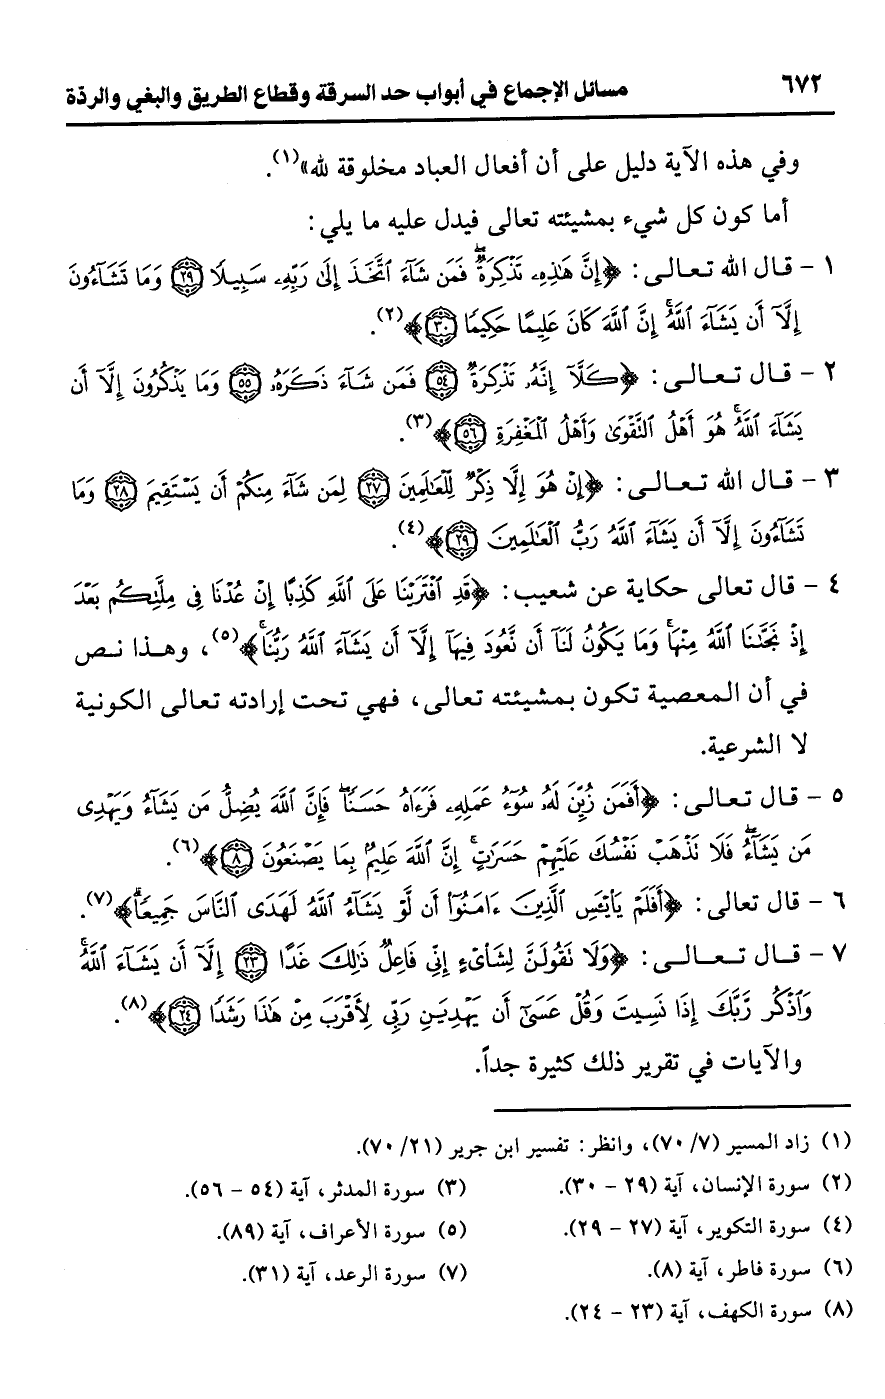 ٦٧٢
مسائل الإجماع في أبواب حد السرقة وقطاع الطريق والبغي والردّة
وفي هذه الآية دليل على أن أفعال العباد مخلوقة لله»(١).
أما كون كل شيء بمشيئته تعالى فيدل عليه ما يلي:
١ - قال الله تعالى: ﴿إِنَّ هَٰذِهِۦ تَذْكِرَةٌ ۖ فَمَن شَآءَ ٱتَّخَذَ إِلَىٰ رَبِّهِۦ سَبِيلًا ۝٢٩ وَمَا تَشَآءُونَ
إِلَّآ أَن يَشَآءَ ٱللَّهُ ۚ إِنَّ ٱللَّهَ كَانَ عَلِيمًا حَكِيمًا ۝٣٠﴾(٢).
٢ - قال تعالى: ﴿كَلَّآ إِنَّهُۥ تَذْكِرَةٌ ۝٥٤ فَمَن شَآءَ ذَكَرَهُۥ ۝٥٥ وَمَا يَذْكُرُونَ إِلَّآ أَن
يَشَآءَ ٱللَّهُ ۚ هُوَ أَهْلُ ٱلتَّقْوَىٰ وَأَهْلُ ٱلْمَغْفِرَةِ ۝٥٦﴾(٣).
٣ - قال الله تعالى: ﴿إِنْ هُوَ إِلَّا ذِكْرٌ لِّلْعَٰلَمِينَ ۝٢٧ لِمَن شَآءَ مِنكُمْ أَن يَسْتَقِيمَ ۝٢٨ وَمَا
تَشَآءُونَ إِلَّآ أَن يَشَآءَ ٱللَّهُ رَبُّ ٱلْعَٰلَمِينَ ۝٢٩﴾(٤).
٤ - قال تعالى حكاية عن شعيب: ﴿قَدِ ٱفْتَرَيْنَا عَلَى ٱللَّهِ كَذِبًا إِنْ عُدْنَا فِى مِلَّتِكُم بَعْدَ
إِذْ نَجَّىٰنَا ٱللَّهُ مِنْهَا ۚ وَمَا يَكُونُ لَنَآ أَن نَّعُودَ فِيهَآ إِلَّآ أَن يَشَآءَ ٱللَّهُ رَبُّنَا ۚ﴾(٥)، وهذا نص
في أن المعصية تكون بمشيئته تعالى، فهي تحت إرادته تعالى الكونية
لا الشرعية.
٥ - قال تعالى: ﴿أَفَمَن زُيِّنَ لَهُۥ سُوٓءُ عَمَلِهِۦ فَرَءَاهُ حَسَنًا ۖ فَإِنَّ ٱللَّهَ يُضِلُّ مَن يَشَآءُ وَيَهْدِى
مَن يَشَآءُ ۖ فَلَا تَذْهَبْ نَفْسُكَ عَلَيْهِمْ حَسَرَٰتٍ ۚ إِنَّ ٱللَّهَ عَلِيمٌۢ بِمَا يَصْنَعُونَ ۝٨﴾(٦).
٦ - قال تعالى: ﴿أَفَلَمْ يَا۟يْـَٔسِ ٱلَّذِينَ ءَامَنُوٓا۟ أَن لَّوْ يَشَآءُ ٱللَّهُ لَهَدَى ٱلنَّاسَ جَمِيعًا ۗ﴾(٧).
٧ - قال تعالى: ﴿وَلَا تَقُولَنَّ لِشَا۟ىْءٍ إِنِّى فَاعِلٌ ذَٰلِكَ غَدًا ۝٢٣ إِلَّآ أَن يَشَآءَ ٱللَّهُ ۚ
وَٱذْكُر رَّبَّكَ إِذَا نَسِيتَ وَقُلْ عَسَىٰٓ أَن يَهْدِيَنِ رَبِّى لِأَقْرَبَ مِنْ هَٰذَا رَشَدًا ۝٢٤﴾(٨).
والآيات في تقرير ذلك كثيرة جداً.
(١) زاد المسير (٧/ ٧٠)، وانظر: تفسير ابن جرير (٢١/ ٧٠).
(٢) سورة الإنسان، آية (٢٩ - ٣٠). (٣) سورة المدثر، آية (٥٤ - ٥٦).
(٤) سورة التكوير، آية (٢٧ - ٢٩). (٥) سورة الأعراف، آية (٨٩).
(٦) سورة فاطر، آية (٨). (٧) سورة الرعد، آية (٣١).
(٨) سورة الكهف، آية (٢٣ - ٢٤).